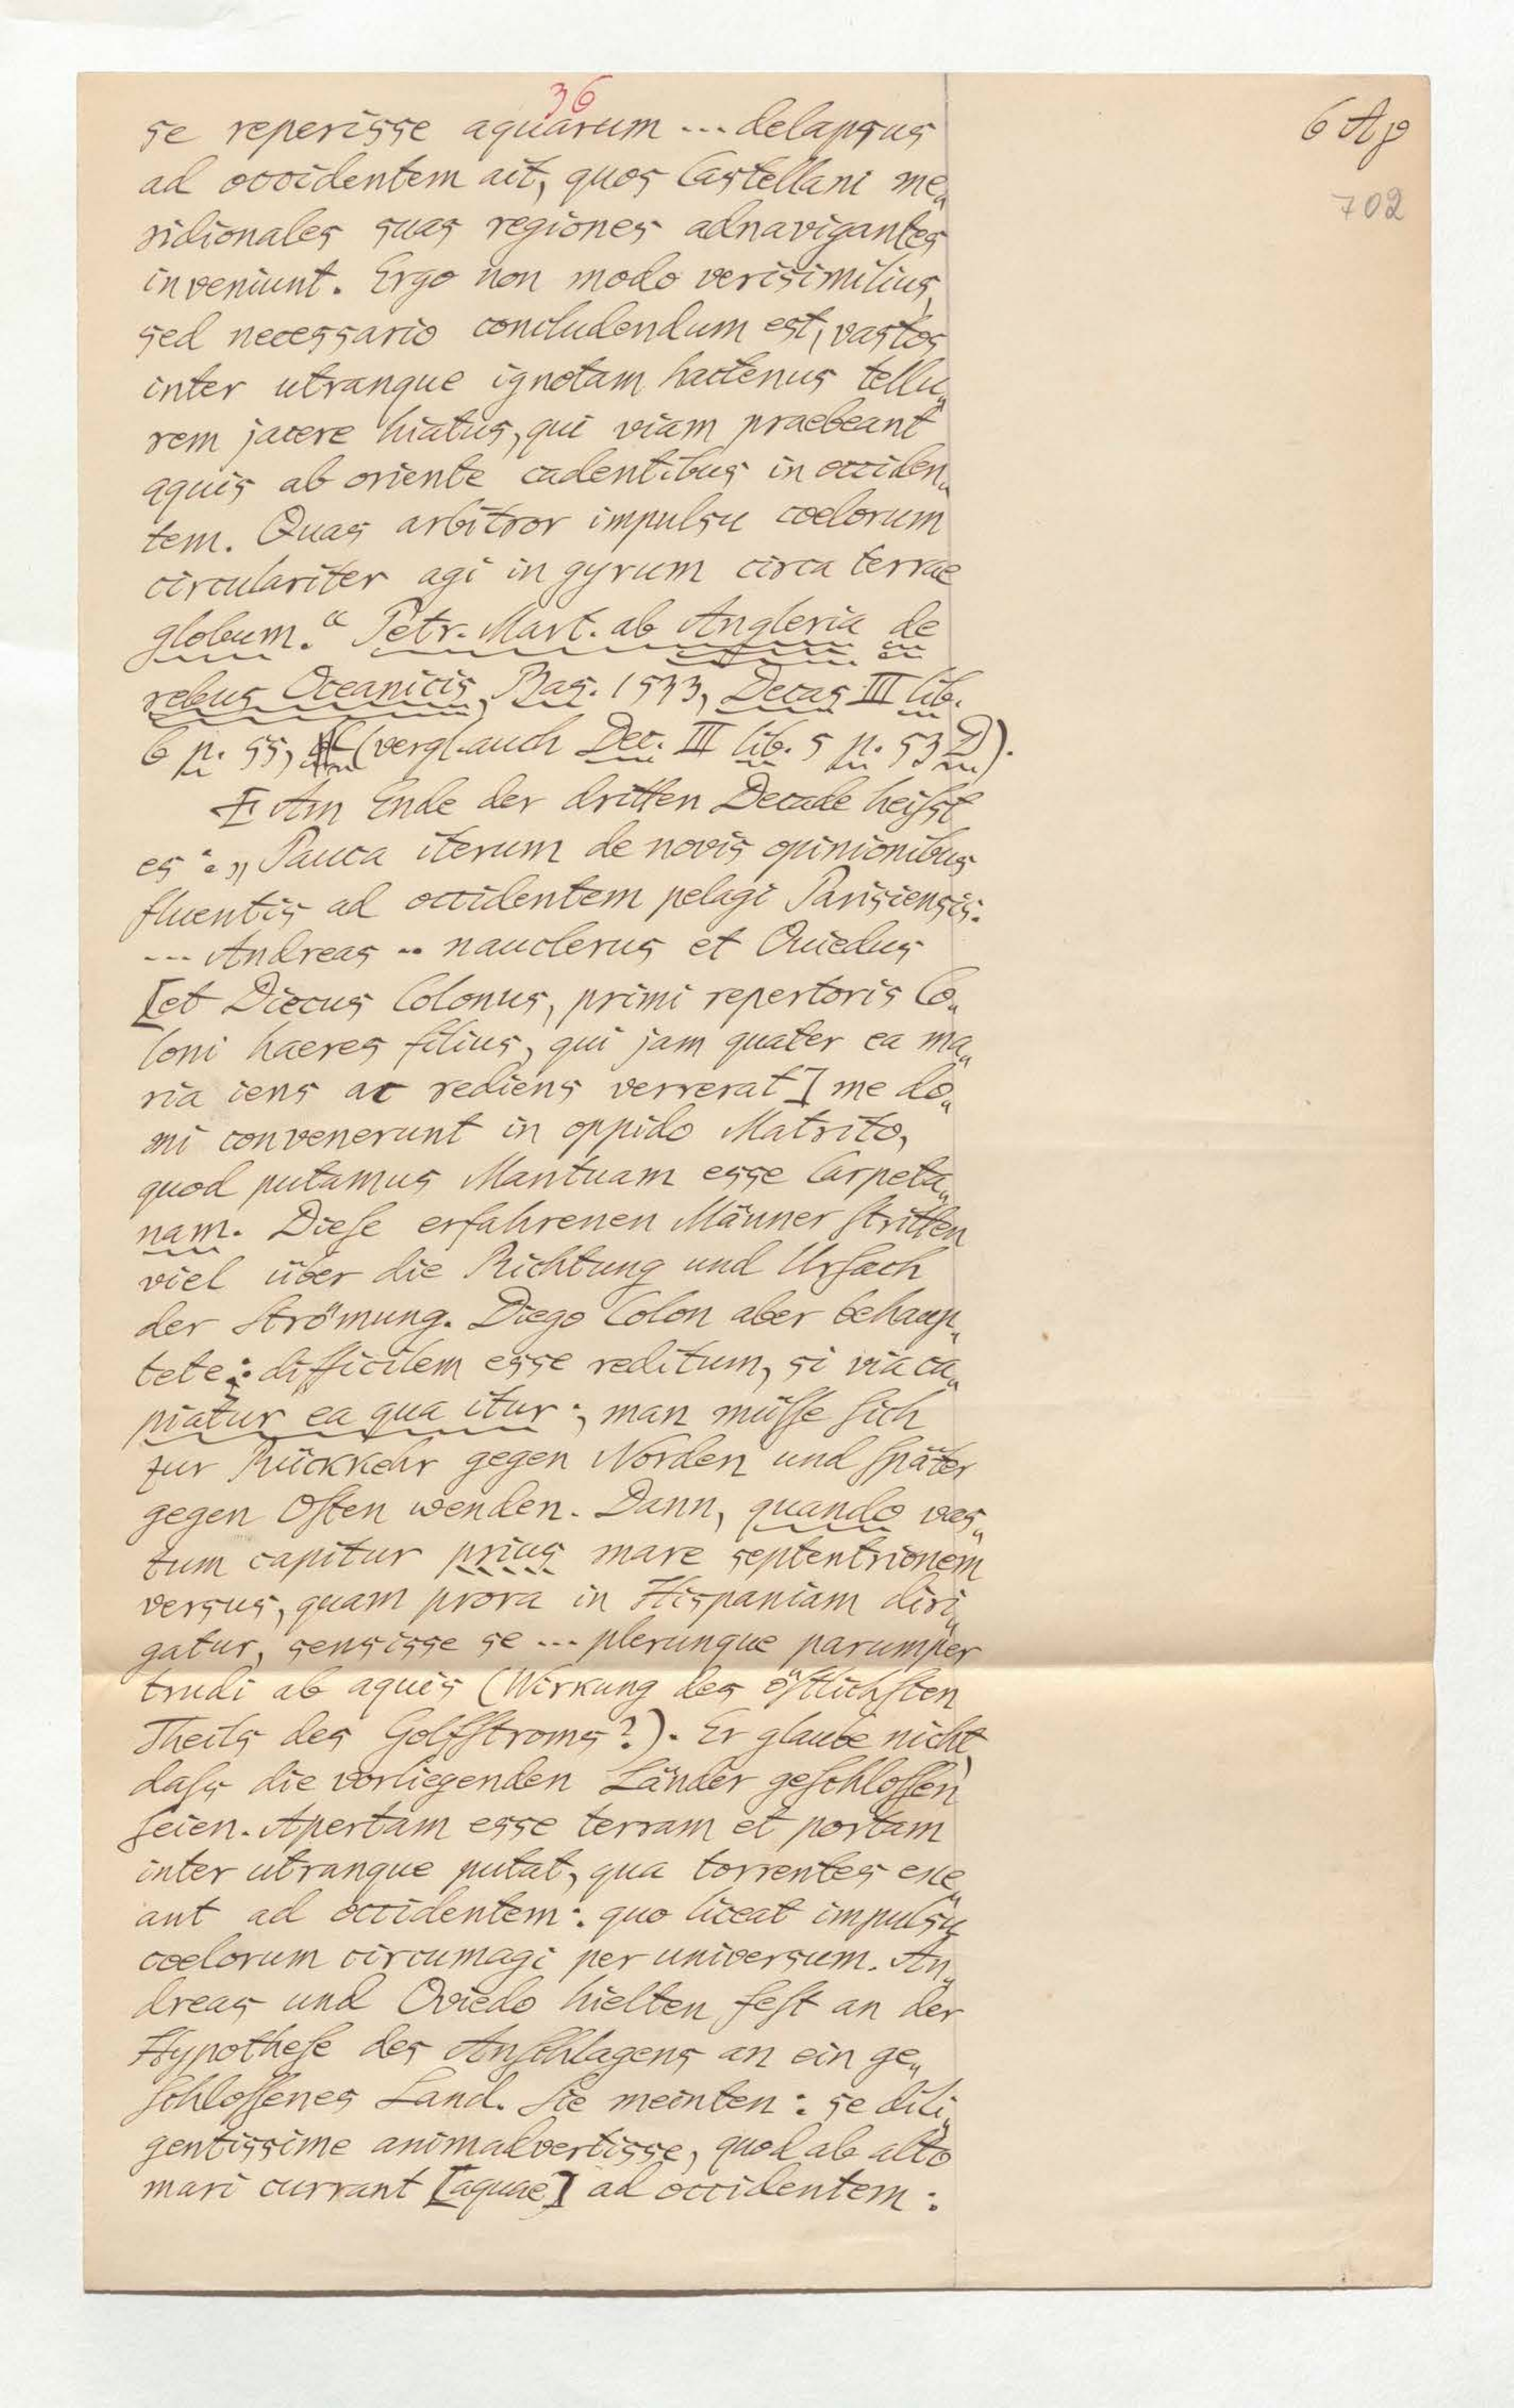 36
6 Ap
702
se reperisse aquarum --- delapsus
ad occidentem ait, quos Castellani me„
ridionales suas regiones adnavigantes
inveniunt. Ergo non modo verisimilius,
sed necessario concludendum est, vastos
inter utranque ignotam hactenus tellu„
rem jacere hiatus, qui viam praebeant
aquis ab oriente cadentibus in occiden„
tem. Quas arbitror impulsu coelorum
circulariter agi in gyrum circa terrae
globum.“ Petr. Mart. ab Angleria de
rebus Oceanicis, Bas. 1533, Decas III lib.
6 p. 55, (vergl. auch Dec. III lib. 5 p. 53 D).
Am Ende der dritten Decade heiſst
es: „Pauca iterum de novis opinionibus
fluentis ad occidentem pelagi Parisiensis.
--- Andreas -- nauclerus et Ouiedus
[et Diecus Colonus, primi repertoris Co„
loni haeres filius, qui jam quater ea ma„
ria iens ac rediens verrerat] me do„
mi convenerunt in oppido Matrito,
quod putamus Mantuam esse Carpeta„
nam. Dieſe erfahrenen Männer ſtritten
viel über die Richtung und Urſach
der Strömung. Diego Colon aber behaup„
tete: difficilem esse reditum, si via ca„
piatur ea qua itur; man müſſe ſich
zur Rückkehr gegen Norden und ſpäter
gegen Oſten wenden. Dann, quando vas„
tum capitur prius mare septentrionem
versus, quam prora in Hispaniam diri„
gatur, sensisse se --- plerunque parumper
trudi ab aquis (Wirkung des öſtlichſten
Theils des Golfſtroms?). Er glaube nicht,
daſs die vorliegenden Länder geſchloſſen
ſeien. Apertam esse terram et portam
inter utranque putat, qua torrentes exe„
ant ad occidentem: quo liceat impulsu
coelorum circumagi per universum. An„
dreas und Oviedo hielten feſt an der
Hypotheſe des Anſchlagens an ein ge„
ſchloſſenes Land. Sie meinten: se dili„
gentissime animadvertisse, quod ab alto
mari currant [aquae] ad occidentem: